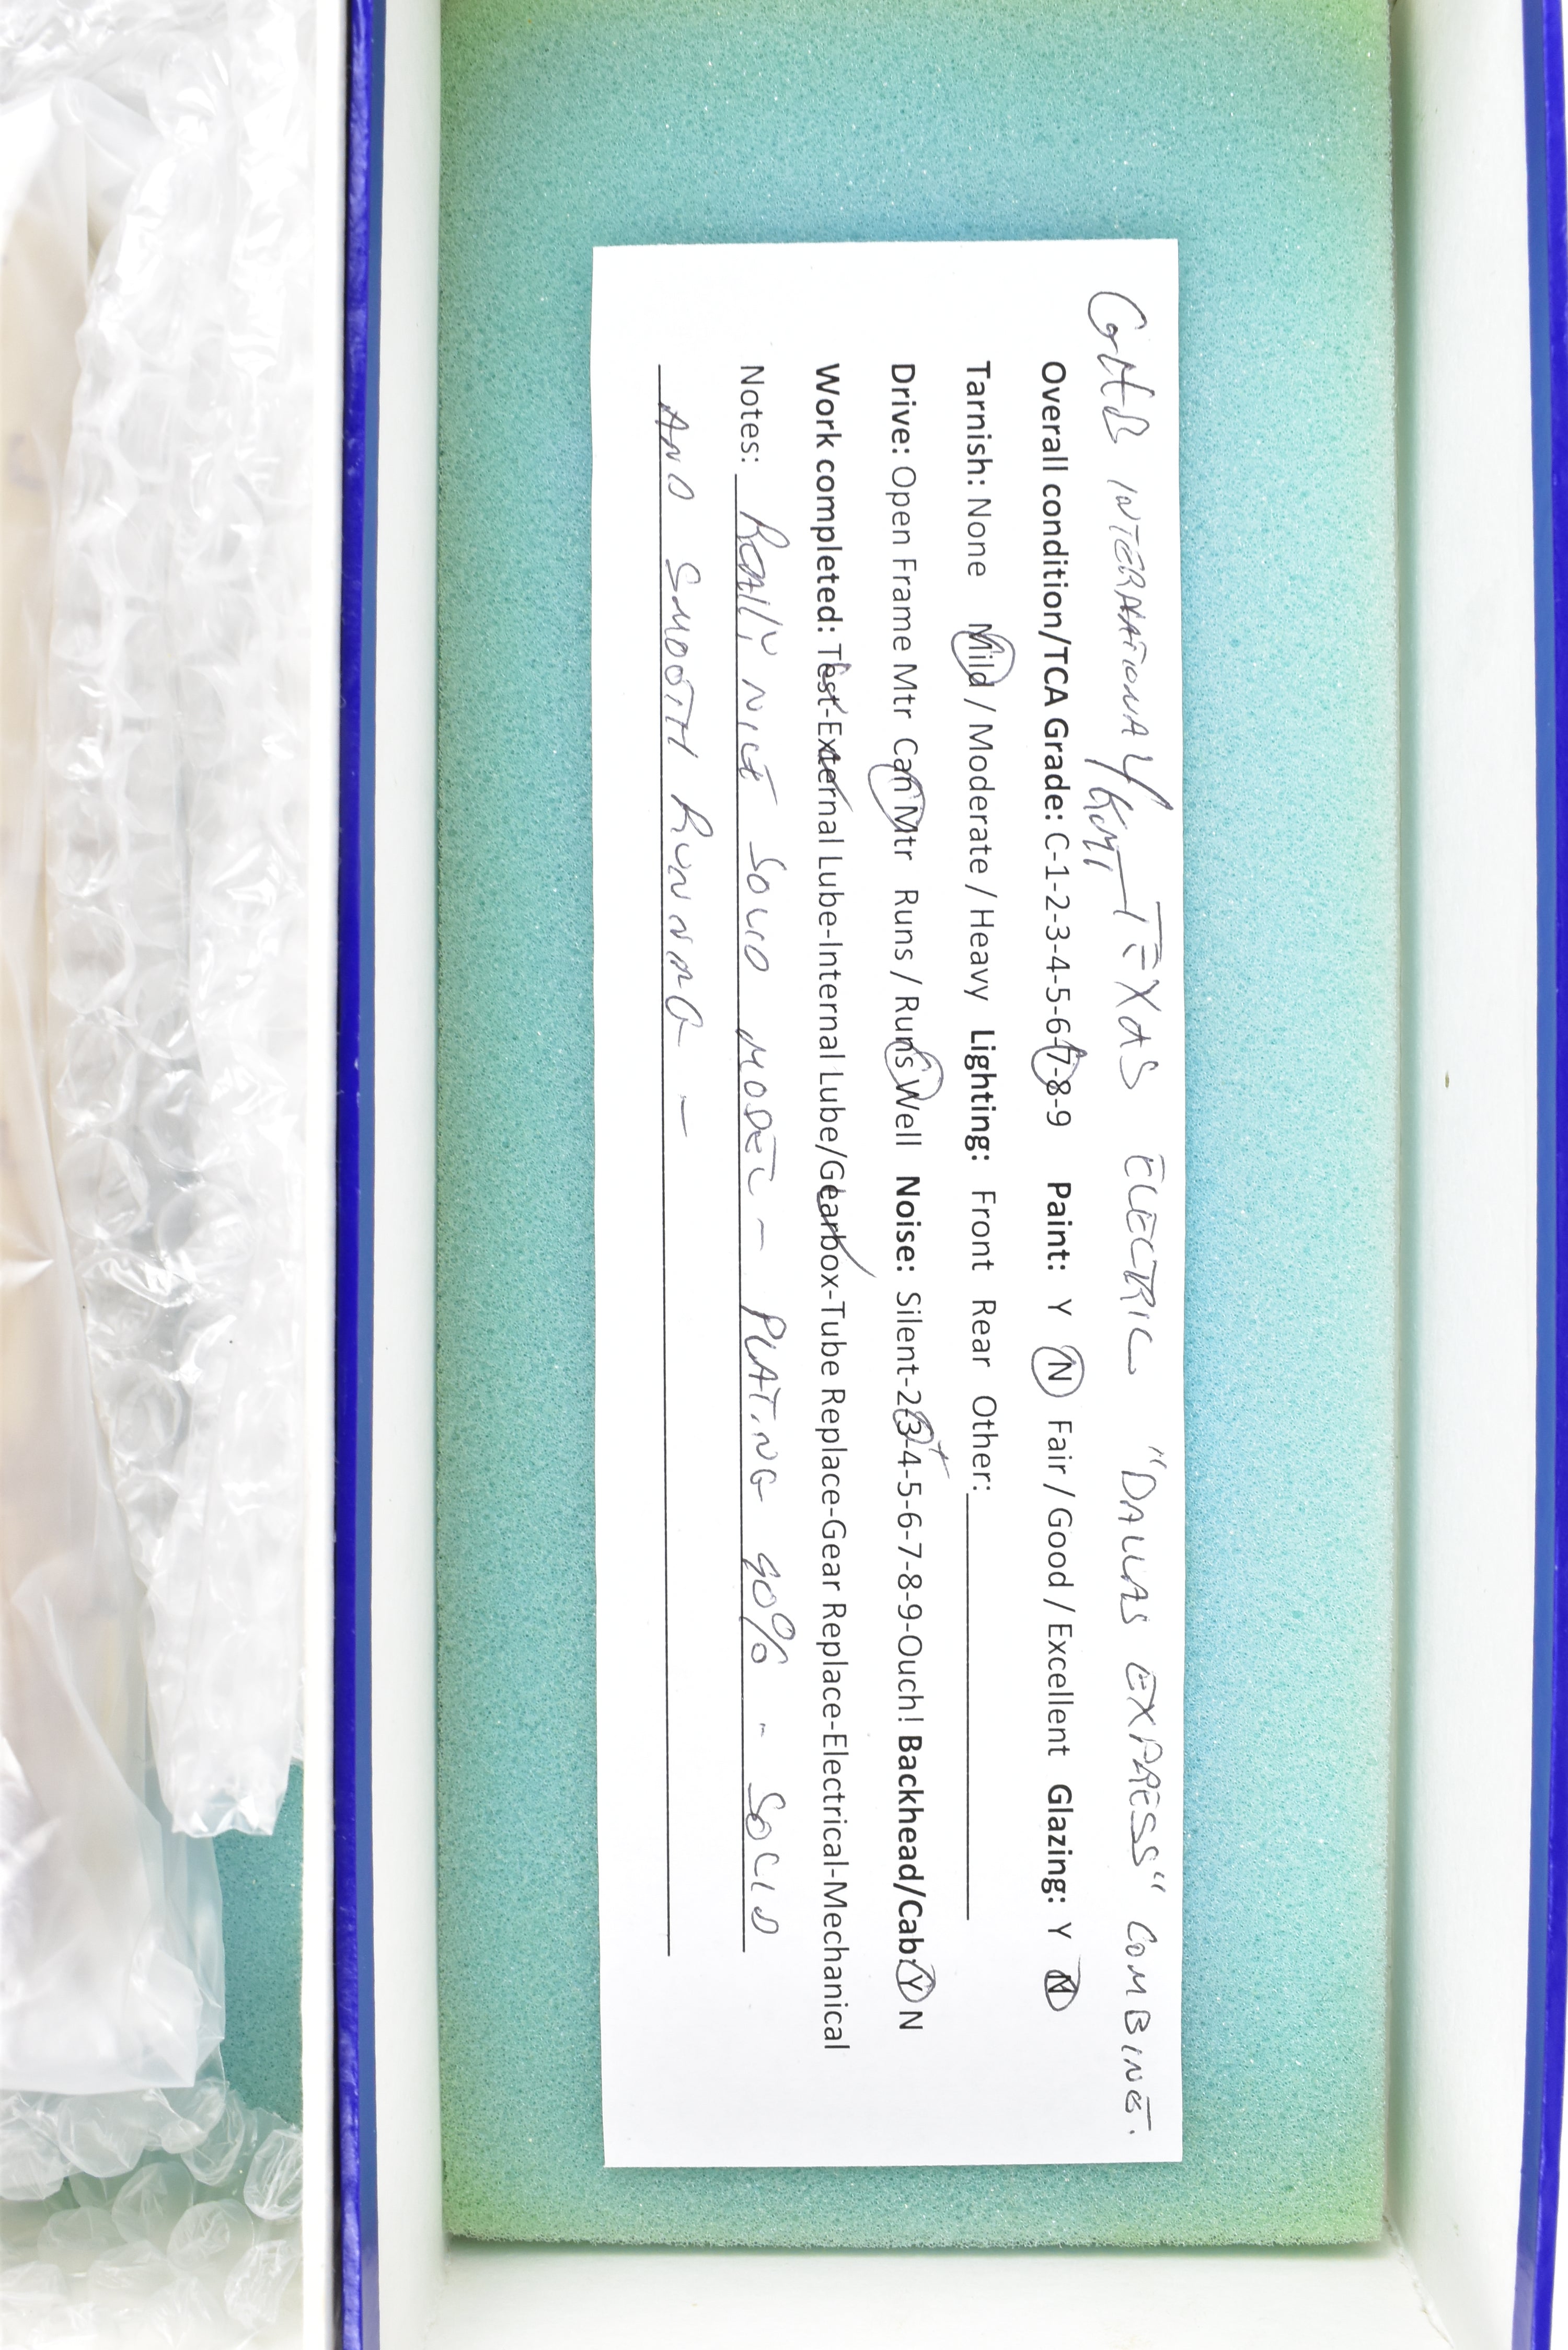 GHB INTERNATIONAL/KMT TEXAS ELECTRIC "DALLAS EXPRESS" COMBINE.
Overall condition/TCA Grade: C-1-2-3-4-5-6-7-8-9 Paint: Y N Fair / Good / Excellent Glazing: Y N
Tarnish: None Mild / Moderate / Heavy Lighting: Front Rear Other:
Drive: Open Frame Mtr Can Mtr Runs / Runs Well Noise: Silent-2-3+-4-5-6-7-8-9-Ouch! Backhead/Cab: Y N
Work completed: Test-External Lube-Internal Lube/Gearbox-Tube Replace-Gear Replace-Electrical-Mechanical
Notes: REALLY NICE SOLID MODEL - PLATING 90% - SOLID
AND SMOOTH RUNNING -